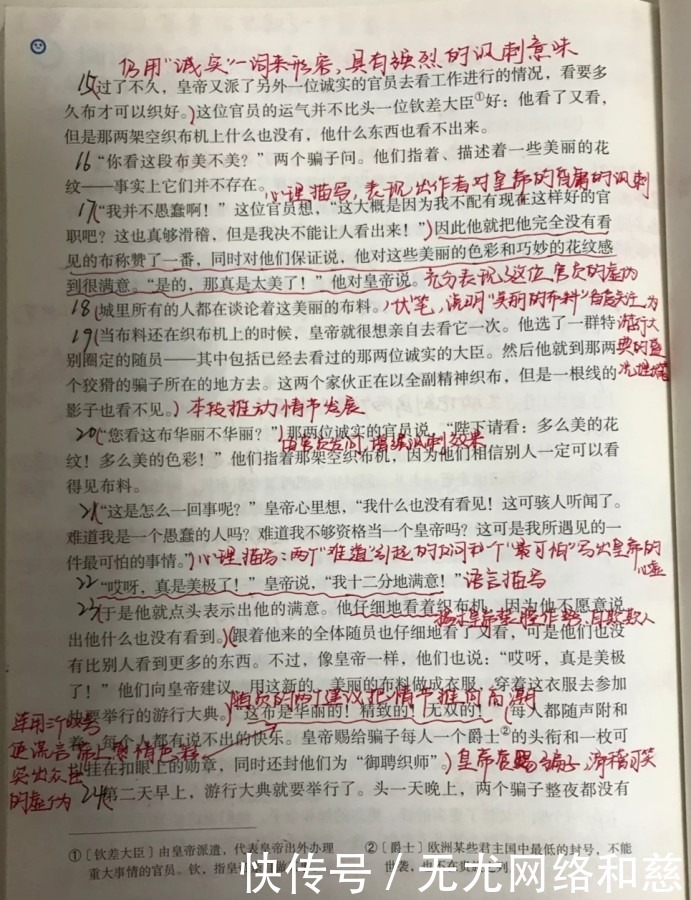 仍用“诚实”一词来形容,具有强烈的讽刺意味
15过了不久,皇帝又派了另外一位诚实的官员去看工作进行的情况,看要多
久布才可以织好。)这位官员的运气并不比头一位钦差大臣①好:他看了又看,
但是那两架空织布机上什么也没有,他什么东西也看不出来。
16“你看这段布美不美?”两个骗子问。他们指着、描述着一些美丽的花
纹——事实上它们并不存在。
心理描写,表现出作者对皇帝的昏庸的讽刺
17“我并不愚蠢啊!”这位官员想,“这大概是因为我不配有现在这样好的官
职吧?这也真够滑稽,但是我决不能让人看出来!”)因此他就把他完全没有看
见的布称赞了一番,同时对他们保证说,他对这些美丽的色彩和巧妙的花纹感
到很满意。“是的,那真是太美了!”他对皇帝说。
充分表现了这位官员的虚伪
18(城里所有的人都在谈论着这美丽的布料。)
伏笔,说明“美丽的布料”备受关注,为
游行大
典的
19(当布料还在织布机上的时候,皇帝就很想亲自去看它一次。他选了一群特
别圈定的随员——其中包括已经去看过的那两位诚实的大臣。然后他就到那两
个狡猾的骗子所在的地方去。这两个家伙正在以全副精神织布,但是一根线的
影子也看不见。)
本段推动情节发展
20(“您看这布华丽不华丽?”)那两位诚实的官员说,“陛下请看:多么美的花
纹!多么美的色彩!”他们指着那架空织布机,因为他们相信别人一定可以看
得见布料。
增强讽刺效果
21(“这是怎么一回事呢?”皇帝心里想,“我什么也没有看见!这可骇人听闻了。
难道我是一个愚蠢的人吗?难道我不够资格当一个皇帝吗?这可是我所遇见的一
件最可怕的事情。”)
心理描写:两个“难道”引起的反问和个“最可怕”写出皇帝的
心虚
22“哎呀,真是美极了!”皇帝说,“我十二分地满意!”
语言描写
23(于是他就点头表示出他的满意。他仔细地看着织布机,因为他不愿意说
出他什么也没有看到。)(跟着他来的全体随员也仔细地看了又看,可是他们也没
有比别人看到更多的东西。不过,像皇帝一样,他们也说:“哎呀,真是美极
了!”他们向皇帝建议,用这新的、美丽的布料做成衣服,穿着这衣服去参加
快要举行的游行大典。)“这布是华丽的!精致的!无双的!”(每人都随声附和
着。每个人都有说不出的快乐。皇帝赐给骗子每人一个爵士②的头衔和一枚可
以挂在扣眼上的勋章,同时还封他们为“御聘织师”。)
随员的两个建议把情节推向高潮
皇帝重赐骗子,滑稽可笑
连用三个叹号
使语言带上
突出众臣
的虚伪
24(第二天早上,游行大典就要举行了。头一天晚上,两个骗子整夜都没有
①〔钦差大臣〕由皇帝派遣,代表皇帝出外办理
重大事情的官员。钦,指皇
②〔爵士〕欧洲某些君主国中最低的封号,不能
世袭,
快传号/无尤网络和慈